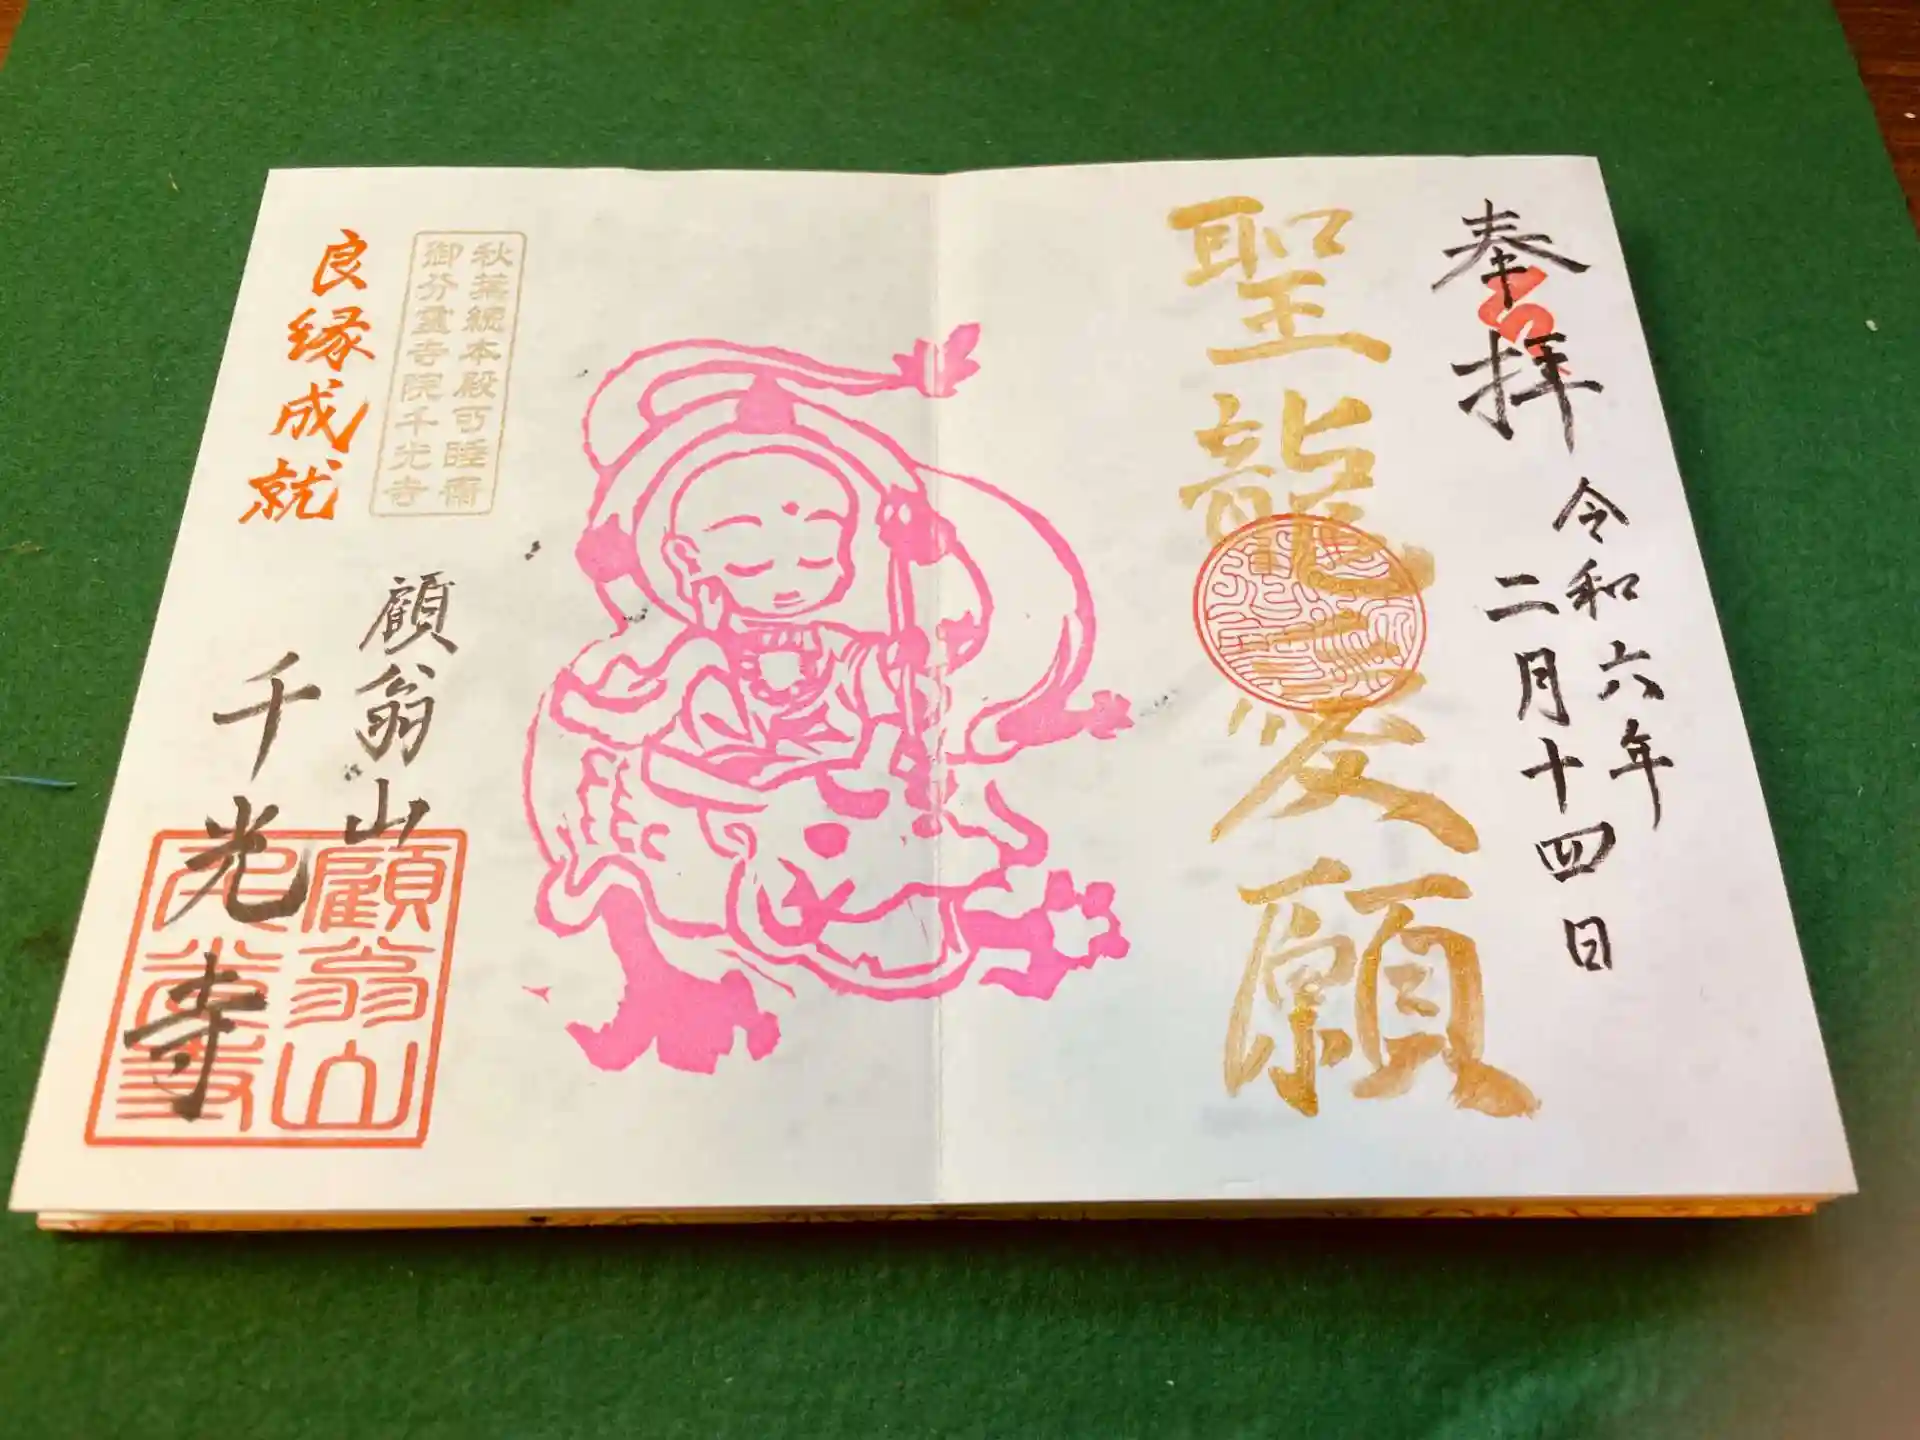 奉拝
令和六年
二月十四日
聖龍愛願
秋葉総本殿可睡斎
御分霊寺院千光寺
良縁成就
顧翁山
千光寺
顧翁山